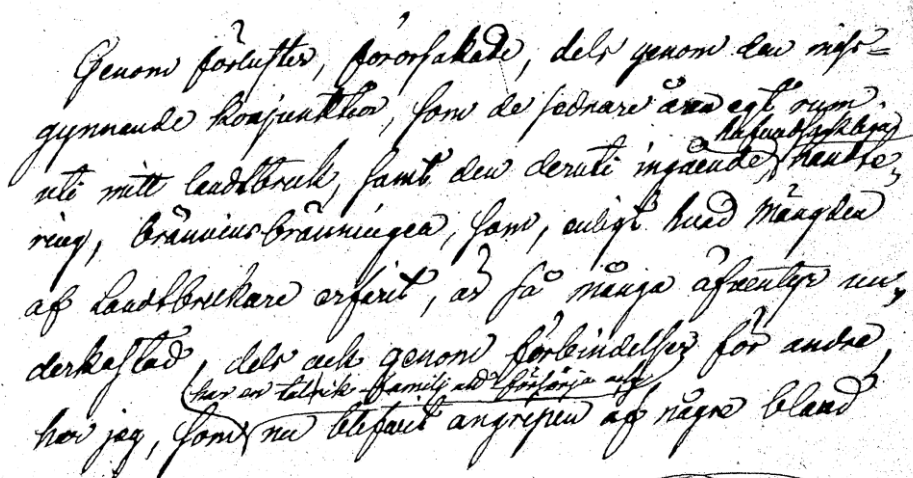 Genom förluster, förorsakade, dels genom den miss=
gynnande konjunktur, som de sednare åren egt rum
hufvudsakliga
uti mitt landtbruk, samt den deruti ingående handte,
ring, bränvinsbränningen, som, enligt hvad mängden
af Landtbrukare erfarit, är så många äfventyr un,
derkastad, dels ock genom förbindelser för andre,
har en talrik familj att försörja och
har jag, som nu blifvit angripen af några bland